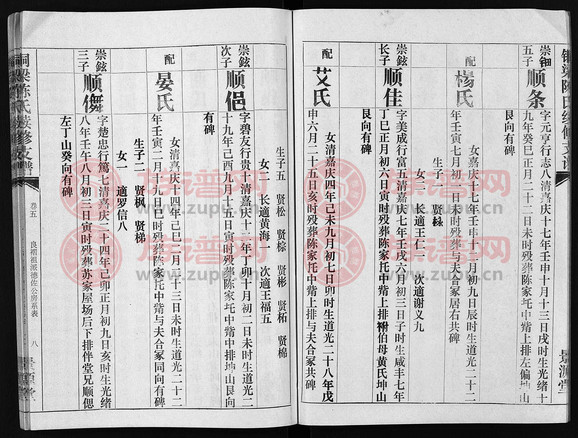 铜梁陈氏续修支谱
景源堂
崇钿
五子
顺条
字元亨行志八清嘉庆十七年壬申十月十三日戌时生光绪十
九年癸巳正月二十一日亥时殁葬陈家托中嘴上排左偏山
艮向有碑
配
杨氏
女清嘉庆十七年壬申十二月初九日辰时生道光二十二
年壬寅七月初二日未时殁葬与夫合冢居右共碑
生子一 贤
女二 长适王仁一 次适谢义九
崇鉉
长子
顺佳
字美成行富五清嘉庆七年壬戌六月初三日子时生咸丰七年
丁巳正月初六日寅时殁葬陈家托中嘴上排祔伯母黄氏坤山
艮向有碑
配
艾氏
女清嘉庆四年己未九月初七日卯时生道光二十八年戊
申六月二十五日亥时殁葬陈家托中嘴上排与夫合冢共碑
生子五 贤松 贤棕 贤彬 贤柘 贤棉
女二 长适黄海一 次适王福五
崇鉉
次子
顺俋
字碧友行贵十清嘉庆十二年丁卯十月初二日未时生道光二
十九年己酉九月十五日寅时殁葬陈家托中嘴中排坤山艮向
有碑
配
晏氏
女清嘉庆十四年己巳二月二十三日未时生道光二十二
年壬寅二月十九日巳时殁葬陈家托中嘴与夫合冢同向有碑
生子二 贤枫 贤梯
女一 适罗信八
崇鉉
三子
顺儛
字楚忠行笃七清嘉庆二十四年己卯正月初九日亥时生光绪
八年壬午八月初三日寅时殁葬苏家屋场后下排伴堂兄顺偲
左丁山癸向有碑
铜梁陈氏续修支谱
卷五
良相祖派德佐公房系表
八
景源堂